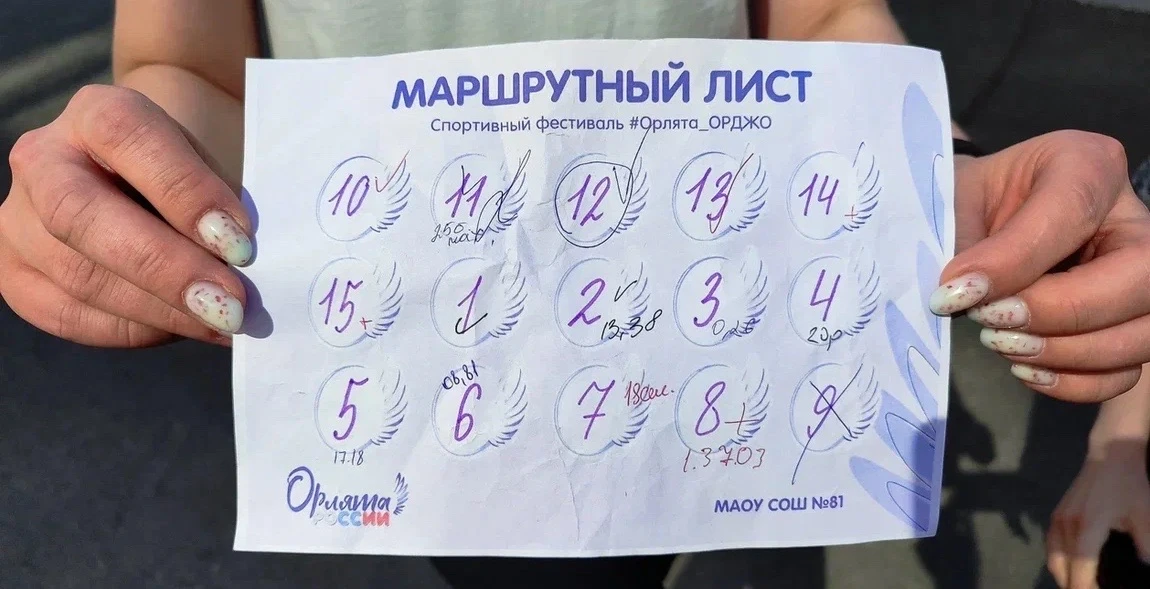 МАРШРУТНЫЙ ЛИСТ
Спортивный фестиваль #Орлята_ОРДЖО
10 11 12 13 14
250
15 1 2 3 4
13,38
20р
08,81
5 6 7 18см. 8 9
17.18
1.37.03
Орлята
РОССИИ
МАОУ СОШ №81